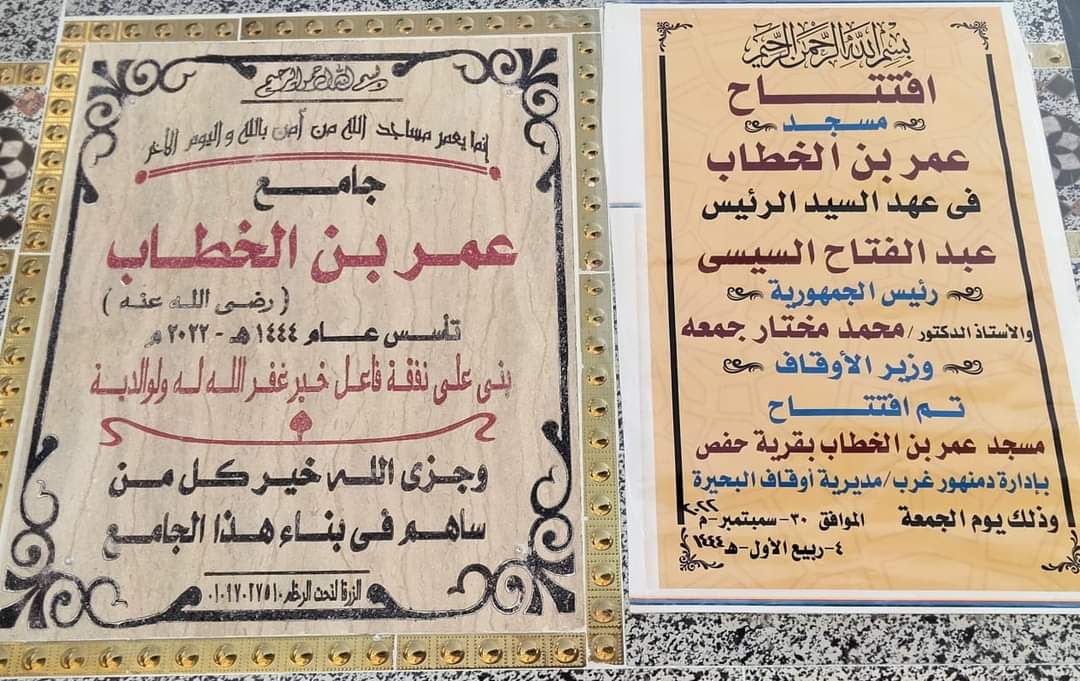 بسم الله الرحمن الرحيم
إنما يعمر مساجد الله من آمن بالله واليوم الأخر
جامع
عمر بن الخطاب
( رضى الله عنه )
تأسس عام ١٤٤٤ هـ - ٢٠٢٢ م
بنى على نفقة فاعل خير غفر الله له ولوالدية
وجزى الله خير كل من
ساهم فى بناء هذا الجامع
الزرقا لنحت الرخام ٠١٠٩٧٠٢٧٥١٠
بسم الله الرحمن الرحيم
افتتاح
مسجد
عمر بن الخطاب
فى عهد السيد الرئيس
عبد الفتاح السيسى
رئيس الجمهورية
والأستاذ الدكتور / محمد مختار جمعه
وزير الأوقاف
تم افتتاح
مسجد عمر بن الخطاب بقرية حفص
بإدارة دمنهور غرب/مديرية أوقاف البحيرة
وذلك يوم الجمعة الموافق ٣٠-سبتمبر-م ٢٠٢٢
٤-ربيع الأول-هـ ١٤٤٤